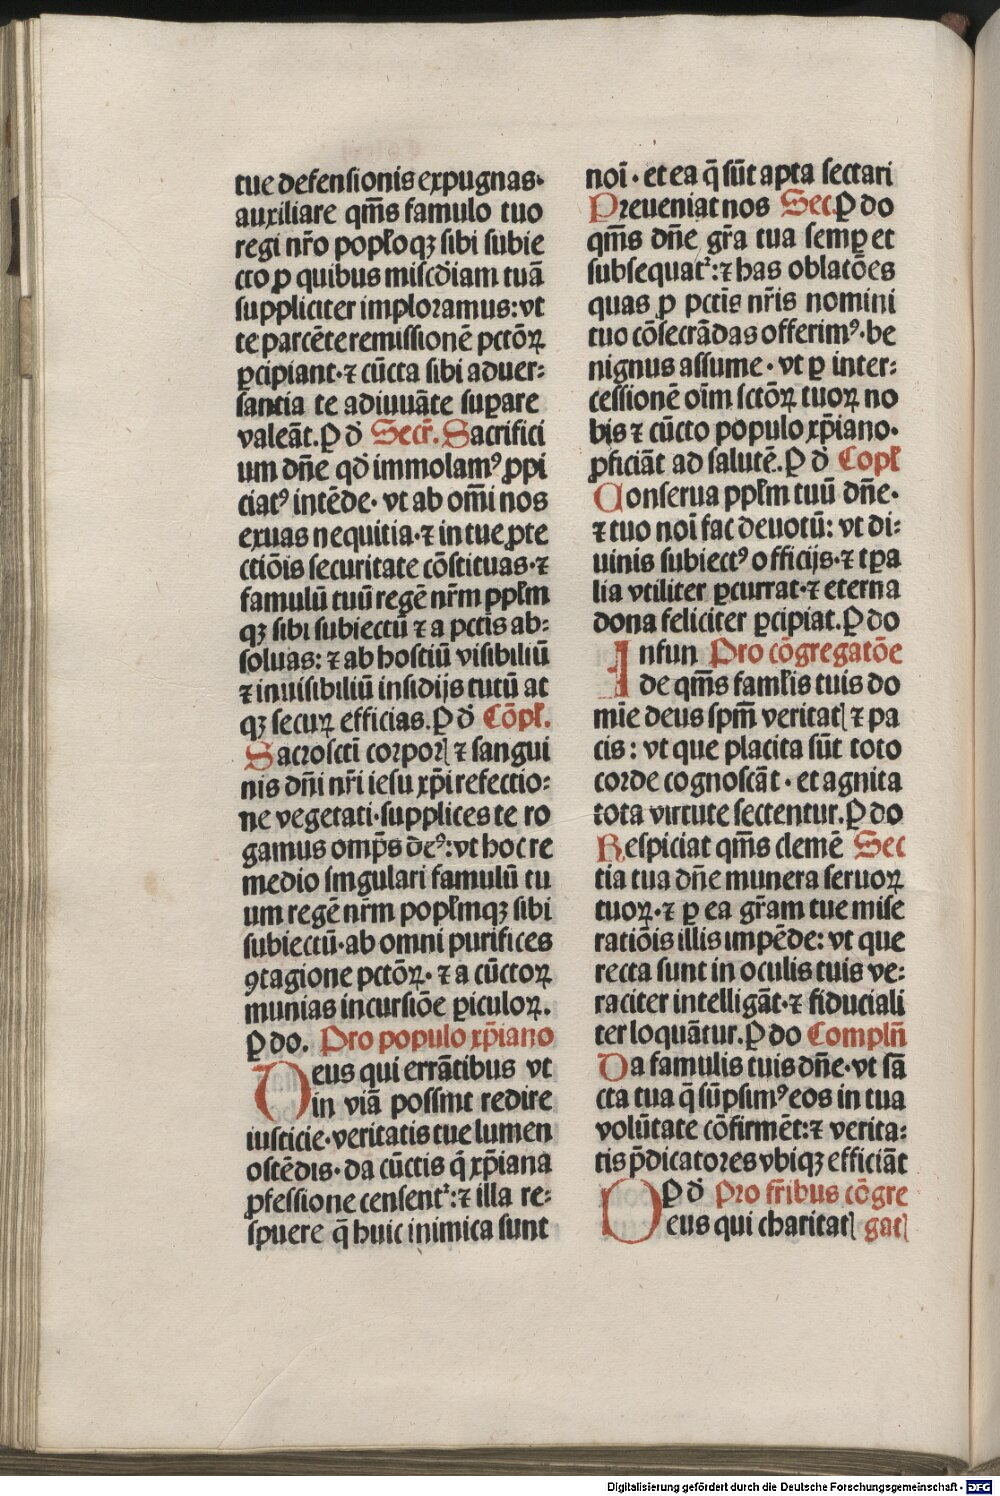 tue defensionis expugnas·
auxiliare qm̄s famulo tuo
regi nr̄o popl̄oqꝫ sibi subie
cto ꝓ quibus misc̄diam tuā
suppliciter imploramus: vt
te parcēte remissionē pctōꝝ
ꝑcipiant·⁊ cūcta sibi aduer:
santia te adiuuāte suꝑare
valeāt.P̲ d̄ Secr̄. Sacrifici
um dn̄e qd̄ immolamꝰ ꝓpi
ciatꝰ intēde· vt ab om̄i nos
exuas nequitia·⁊ in tue ꝓte
ctiōis securitate cōstituas·⁊
famulū tuū regē nr̄m ppl̄m
qꝫ sibi subiectū ⁊ a pctīs ab:
soluas: ⁊ ab hostiū visibiliū
⁊ inuisibiliū insidijs tutū at
qꝫ secuꝝ efficias.P̲ d̄ Cōpl̄.
Sacroscti corporꝭ ⁊ sangui
nis dn̄i nr̄i iesu xp̄i refectio:
ne vegetati·supplices te ro
gamus omp̄s deꝰ: vt hoc re
medio singulari famulū tu
um regē nr̄m popl̄mqꝫ sibi
subiectū·ab omni purifices
ꝯtagione pctōꝝ· ⁊ a cūctoꝝ
munias incursiōe ꝑiculoꝝ.
P̲ do. Pro populo xp̄iano
Deus qui errātibus vt
in viā possint redire
iusticie·veritatis tue lumen
ostēdis· da cūctis q̄ xp̄iana
ꝓfessione censent᷑: ⁊ illa re:
spuere q̄ huic inimica sunt
noī· et ea q̄ sūt apta sectari
Preueniat nos Sec. P̲ do
qm̄s dn̄e gr̄a tua semꝑ et
subsequat᷑: ⁊ has oblatōes
quas ꝓ pctīs nr̄is nomini
tuo cōsecrādas offerimꝰ·be
nignus assume· vt ꝑ inter:
cessionē oīm sctōꝝ tuoꝝ no
bis ⁊ cūcto populo xp̄iano·
ꝓficiāt ad salutē.P̲ d̄ Copl̄
Conserua ppl̄m tuū dn̄e·
⁊ tuo noī fac deuotū: vt di:
uinis subiectꝰ officijs·⁊ tꝑa
lia vtiliter ꝑcurrat·⁊ eterna
dona feliciter ꝑcipiat.P̲ do
Infun Pro cōgregatōe
de qm̄s faml̄is tuis do
mīe deus spm̄ veritatꝭ ⁊ pa
cis: vt que placita sūt toto
corde cognoscāt· et agnita
tota virtute sectentur.P̲ do
Respiciat qm̄s clemē Sec
tia tua dn̄e munera seruoꝝ
tuoꝝ·⁊ ꝑ ea gr̄am tue mise
ratiōis illis impēde: vt que
recta sunt in oculis tuis ve:
raciter intelligāt·⁊ fiduciali
ter loquātur.P̲ do Compln̄
Da famulis tuis dn̄e·vt sā
cta tua q̄ sūpsimꝰ eos in tua
volūtate cōfirmēt: ⁊ verita:
tis p̄dicatores vbiqꝫ efficiāt
P̲ d̄ Pro fr̄ibus cōgre
Deus qui charitatꝭ gatꝭ
Digitalisierung gefördert durch die Deutsche Forschungsgemeinschaft - DFG